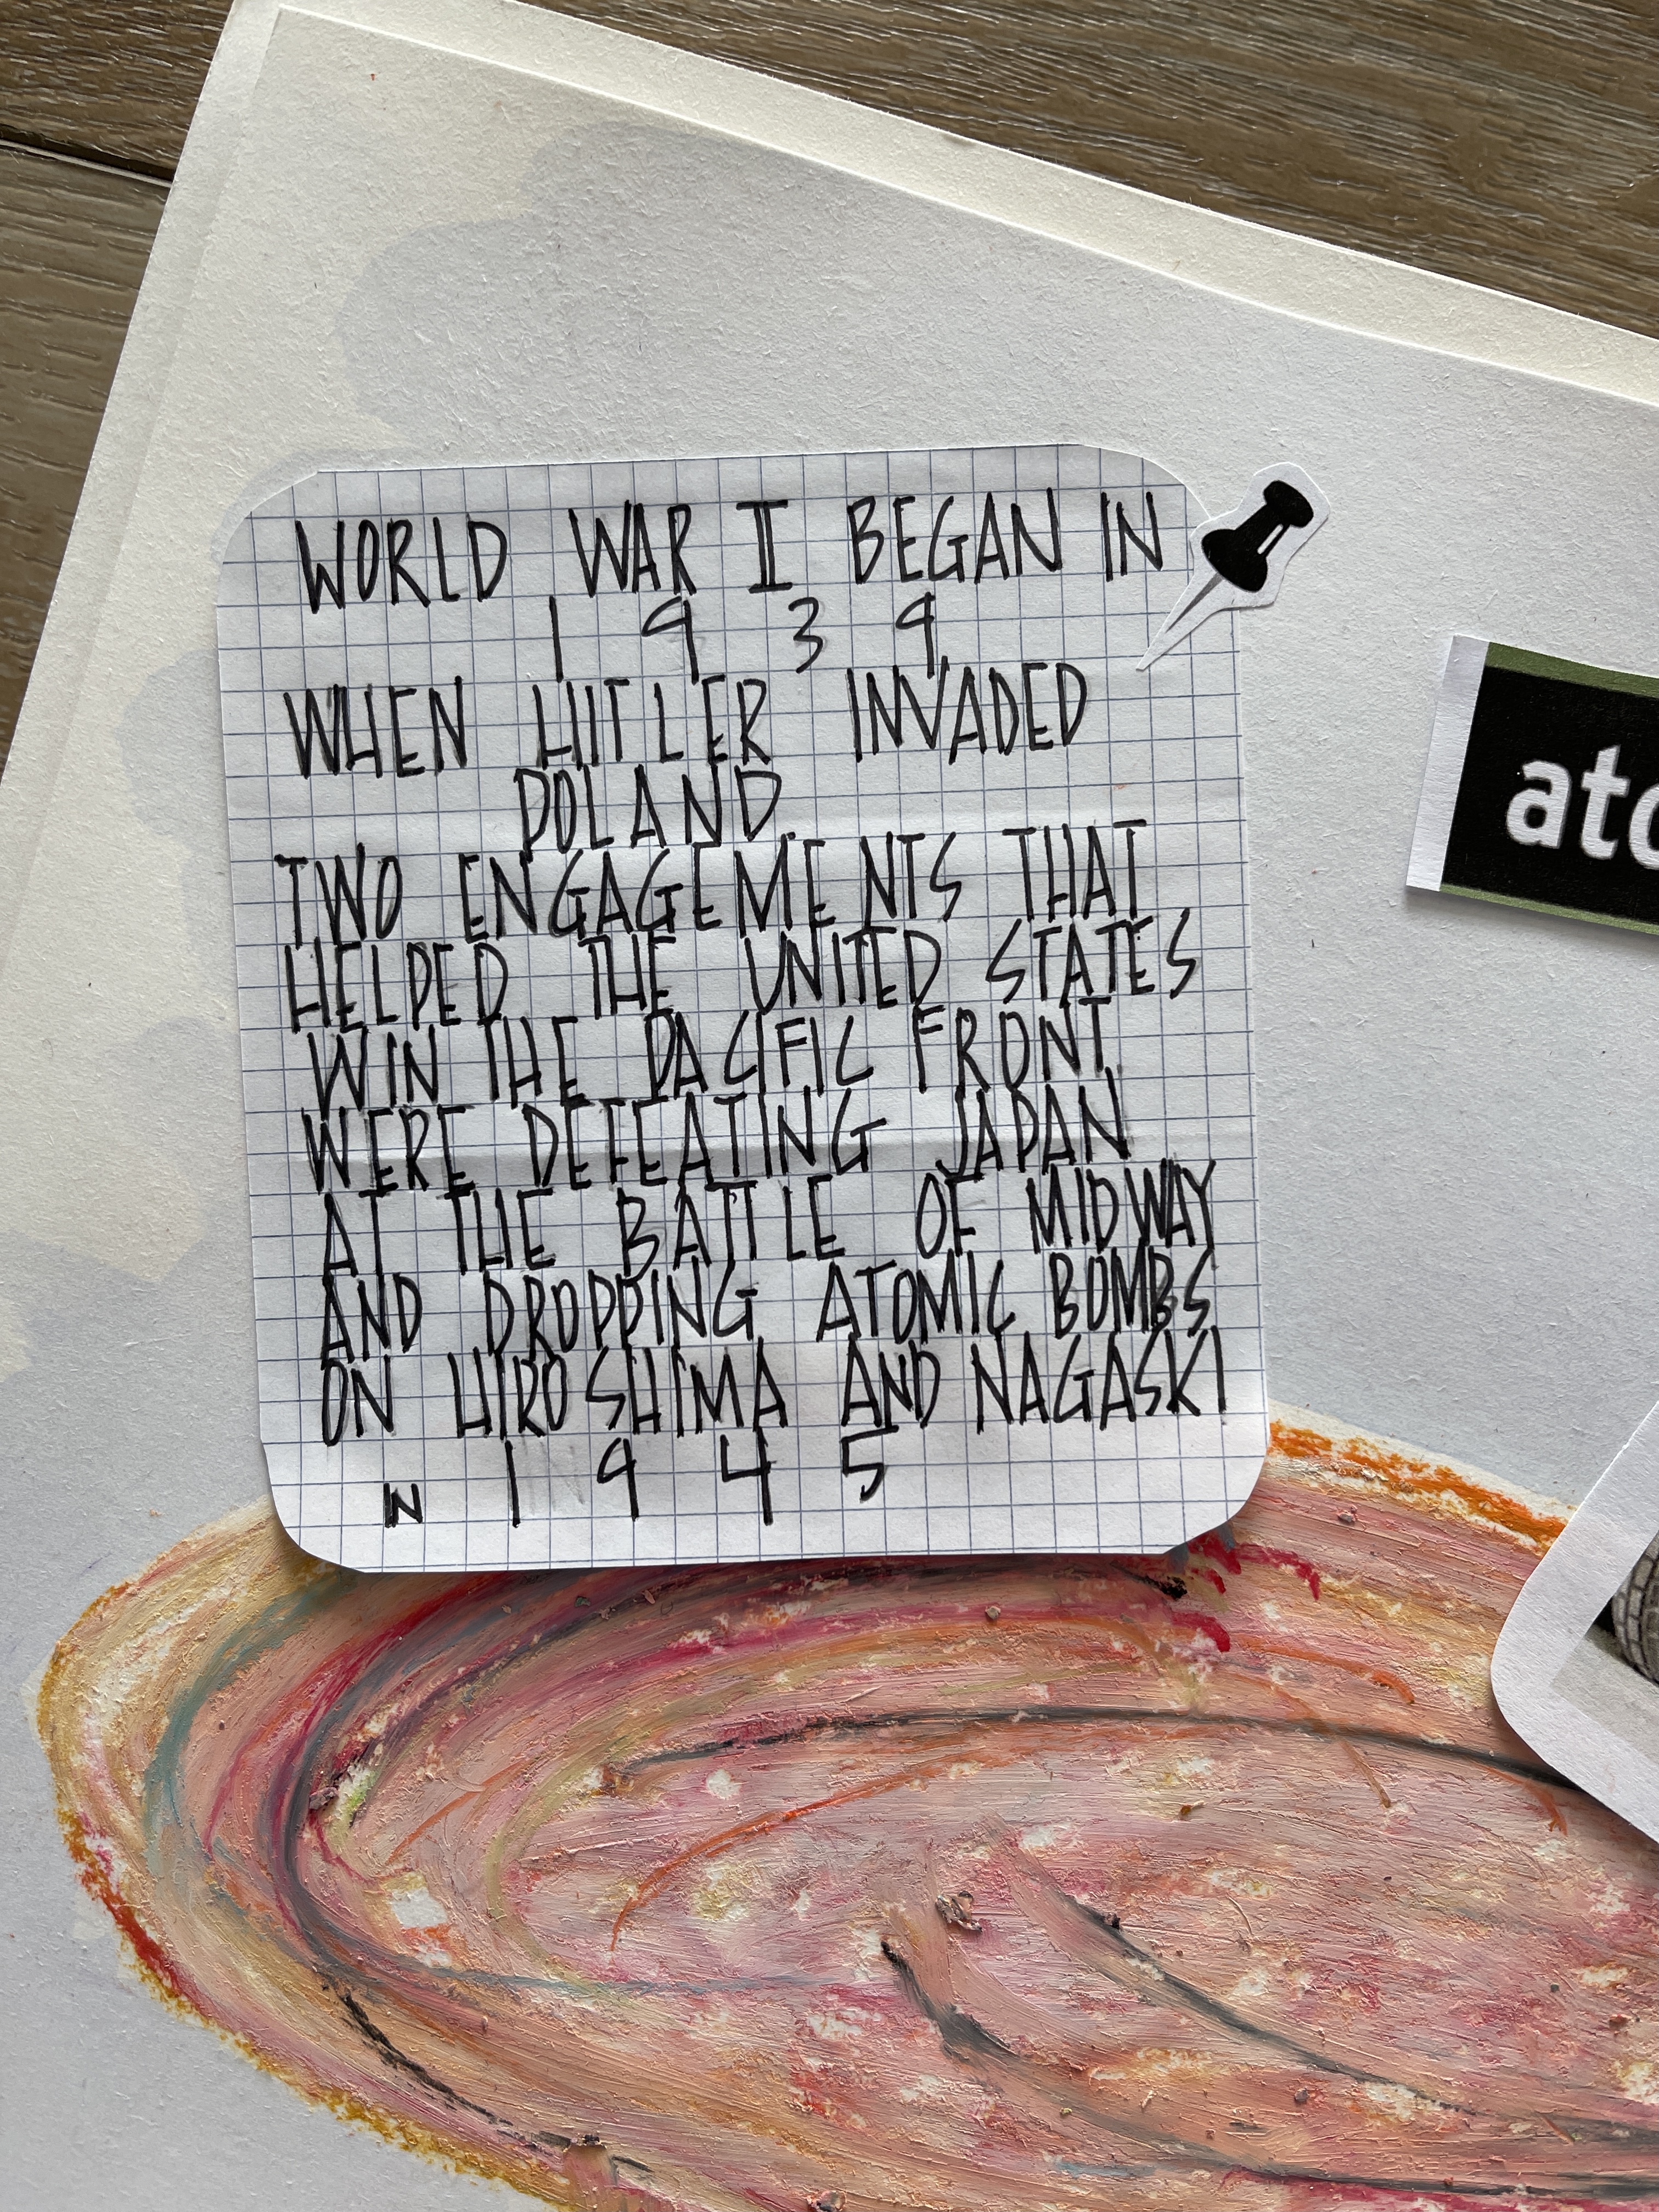 WORLD WAR II BEGAN IN
1939,
WHEN HITLER INVADED
POLAND.
TWO ENGAGEMENTS THAT
HELPED THE UNITED STATES
WIN THE PACIFIC FRONT
WERE DEFEATING JAPAN
AT THE BATTLE OF MIDWAY
AND DROPPING ATOMIC BOMBS
ON HIROSHIMA AND NAGASKI
IN 1945